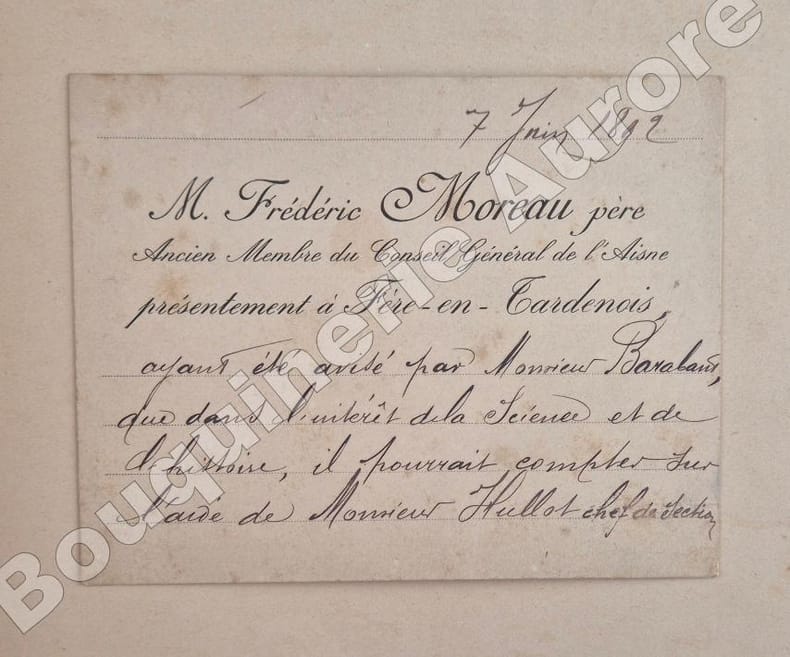 7 Juin 1892
M. Frédéric Moreau père
Ancien Membre du Conseil Général de l'Aisne
présentement à Fère-en-Tardenois,
ayant été avisé par Monsieur Barabant,
que dans l'intérêt de la Science et de
l'histoire, il pourrait compter sur
l'aide de Monsieur Hullot chef de Section
Bouquinerie Aurore